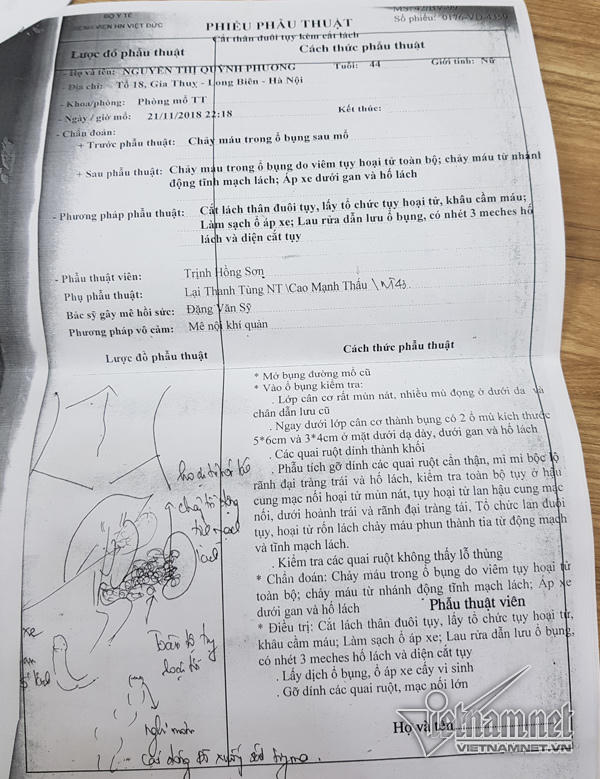 BỘ Y TẾ
BỆNH VIỆN HN VIỆT ĐỨC
PHIẾU PHẪU THUẬT
Số phiếu: 0176-VD-4359
Cắt thân đuôi tụy kèm cắt lách
Lược đồ phẫu thuật
Cách thức phẫu thuật
- Họ và tên: NGUYỄN THỊ QUỲNH PHƯƠNG Tuổi: 44 Giới tính: Nữ
- Địa chỉ: Tổ 18, Gia Thụy - Long Biên - Hà Nội
- Khoa/phòng: Phòng mổ TT
- Ngày / giờ mổ: 21/11/2018 22:18 Kết thúc:
- Chẩn đoán:
+ Trước phẫu thuật: Chảy máu trong ổ bụng sau mổ
+ Sau phẫu thuật: Chảy máu trong ổ bụng do viêm tụy hoại tử toàn bộ; chảy máu từ nhánh
động tĩnh mạch lách; Áp xe dưới gan và hố lách
- Phương pháp phẫu thuật: Cắt lách thân đuôi tụy, lấy tổ chức tụy hoại tử, khâu cầm máu;
Làm sạch ổ áp xe; Lau rửa dẫn lưu ổ bụng, có nhét 3 meches hố
lách và diện cắt tụy
- Phẫu thuật viên: Trịnh Hồng Sơn
Phụ phẫu thuật: Lại Thanh Tùng NT \Cao Mạnh Thấu \
Bác sỹ gây mê hồi sức: Đặng Văn Sỹ
Phương pháp vô cảm: Mê nội khí quản
Lược đồ phẫu thuật
Cách thức phẫu thuật
* Mở bụng đường mổ cũ
* Vào ổ bụng kiểm tra:
. Lớp cân cơ rất mủn nát, nhiều mủ đọng ở dưới da và
chân dẫn lưu cũ
. Ngay dưới lớp cân cơ thành bụng có 2 ổ mủ kích thước
5*6cm và 3*4cm ở mặt dưới dạ dày, dưới gan và hố lách
. Các quai ruột dính thành khối
. Phẫu tích gỡ dính các quai ruột cẩn thận, mi mi bộc lộ
rãnh đại tràng trái và hố lách, kiểm tra toàn bộ tụy ở hậu
cung mạc nối hoại tử mủn nát, tụy hoại tử lan hậu cung mạc
nối, dưới hoành trái và rãnh đại tràng tái, Tổ chức lan đuôi
tụy, hoại tử rốn lách chảy máu phun thành tia từ động mạch
và tĩnh mạch lách.
. Kiểm tra các quai ruột không thấy lỗ thủng
* Chẩn đoán: Chảy máu trong ổ bụng do viêm tụy hoại tử
toàn bộ; chảy máu từ nhánh động tĩnh mạch lách; Áp xe
dưới gan và hố lách
Phẫu thuật viên
* Điều trị: Cắt lách thân đuôi tụy, lấy tổ chức tụy hoại tử,
khâu cầm máu; Làm sạch ổ áp xe; Lau rửa dẫn lưu ổ bụng,
có nhét 3 meches hố lách và diện cắt tụy
. Lấy dịch ổ bụng, ổ áp xe cấy vi sinh
. Gỡ dính các quai ruột, mạc nối lớn
Họ và tên
Toàn bộ tụy
hoại tử
vietnamnet
VIETNAMNET.VN